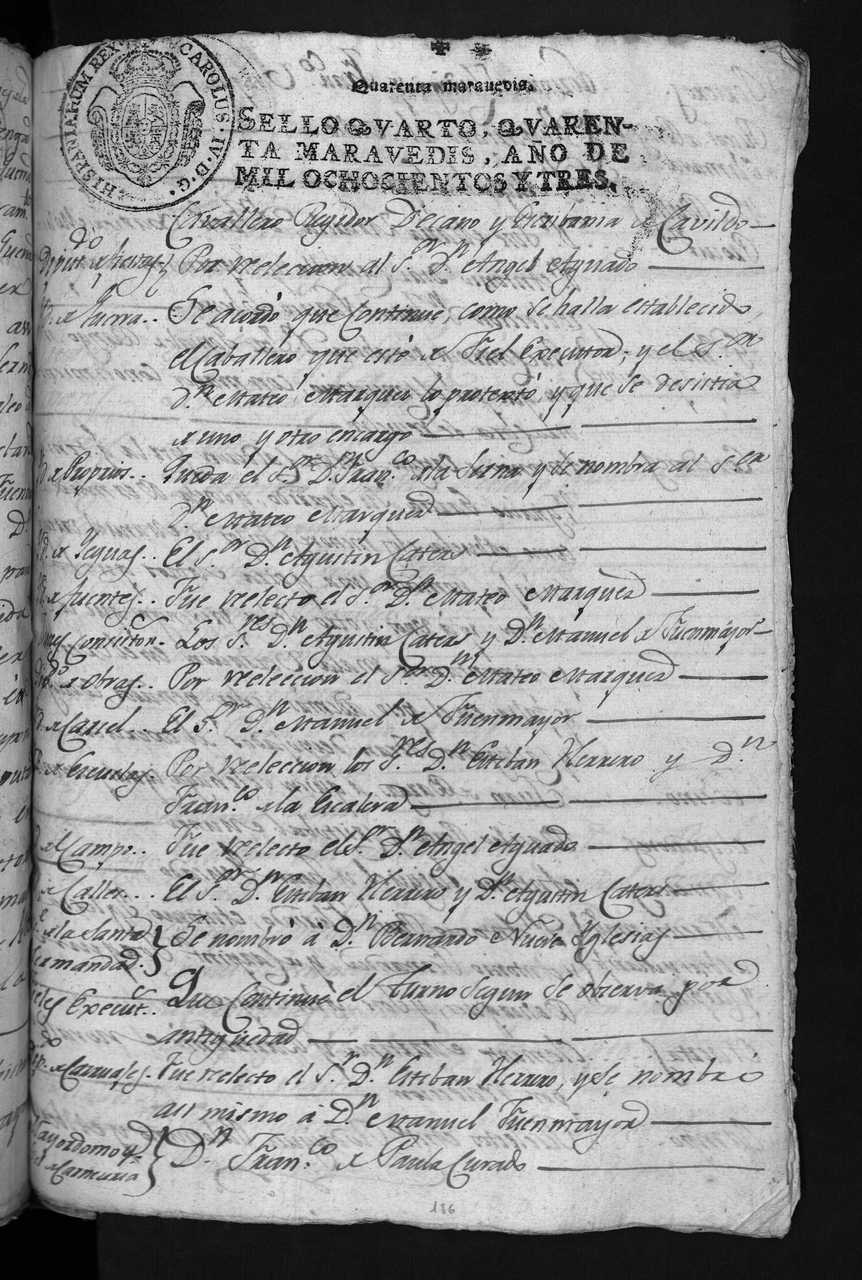 HISPANIARUM REX CAROLUS·IV·D·G·
Quarenta marauedis.
SELLO QVARTO, QVAREN-
TA MARAVEDIS, AÑO DE
MIL OCHOCIENTOS Y TRES.
Cavallero Regidor Decano y Escribania de Cavildo
Por reeleccion al S.or D.n Angel Aguado
de Guerra.. Se acordó que Continue, como se halla establecido,
el Caballero que esté de Fiel Executor; y el S.or
D.n Mateo Marquez lo protextó, y que se desistia
de uno y otro encargo
de Propios.. Queda el S.or D.n Fran.co de la Serna y se nombra al S.or
D.n Mateo Marquez
de Yeguas.. El S.or D.n Agustin Cateras
de fuentes.. Fue reelecto el S.or D.n Mateo Marquez
Consist.. Los S.res D.n Agustin Cateras y D.n Manuel de Fuenmayor
de Obras.. Por reeleccion el S.or D.n Mateo Marquez
de Carcel. El S.or D.n Manuel de Fuenmayor
de Escuelas. Por reeleccion los S.res D.n Esteban Herrero y D.n
Fran.co de la Escalera
de Campo.. Fue reelecto el S.or D.n Angel Aguado
de Calles.. El S.or D.n Esteban Herrero y D.n Agustin Cateras
de la Santa Se nombró á D.n Bernardo de Nueve Yglesias
Hermandad.
Execut.. Que Continue el turno segun se observa por
antigüedad
de Carruages. Fue reelecto el S.or D.n Esteban Herrero, y se nombró
asi mismo á D.n Manuel Fuenmayor
Mayordomo y D.n Fran.co de Paula Curado
de Carniceria
186